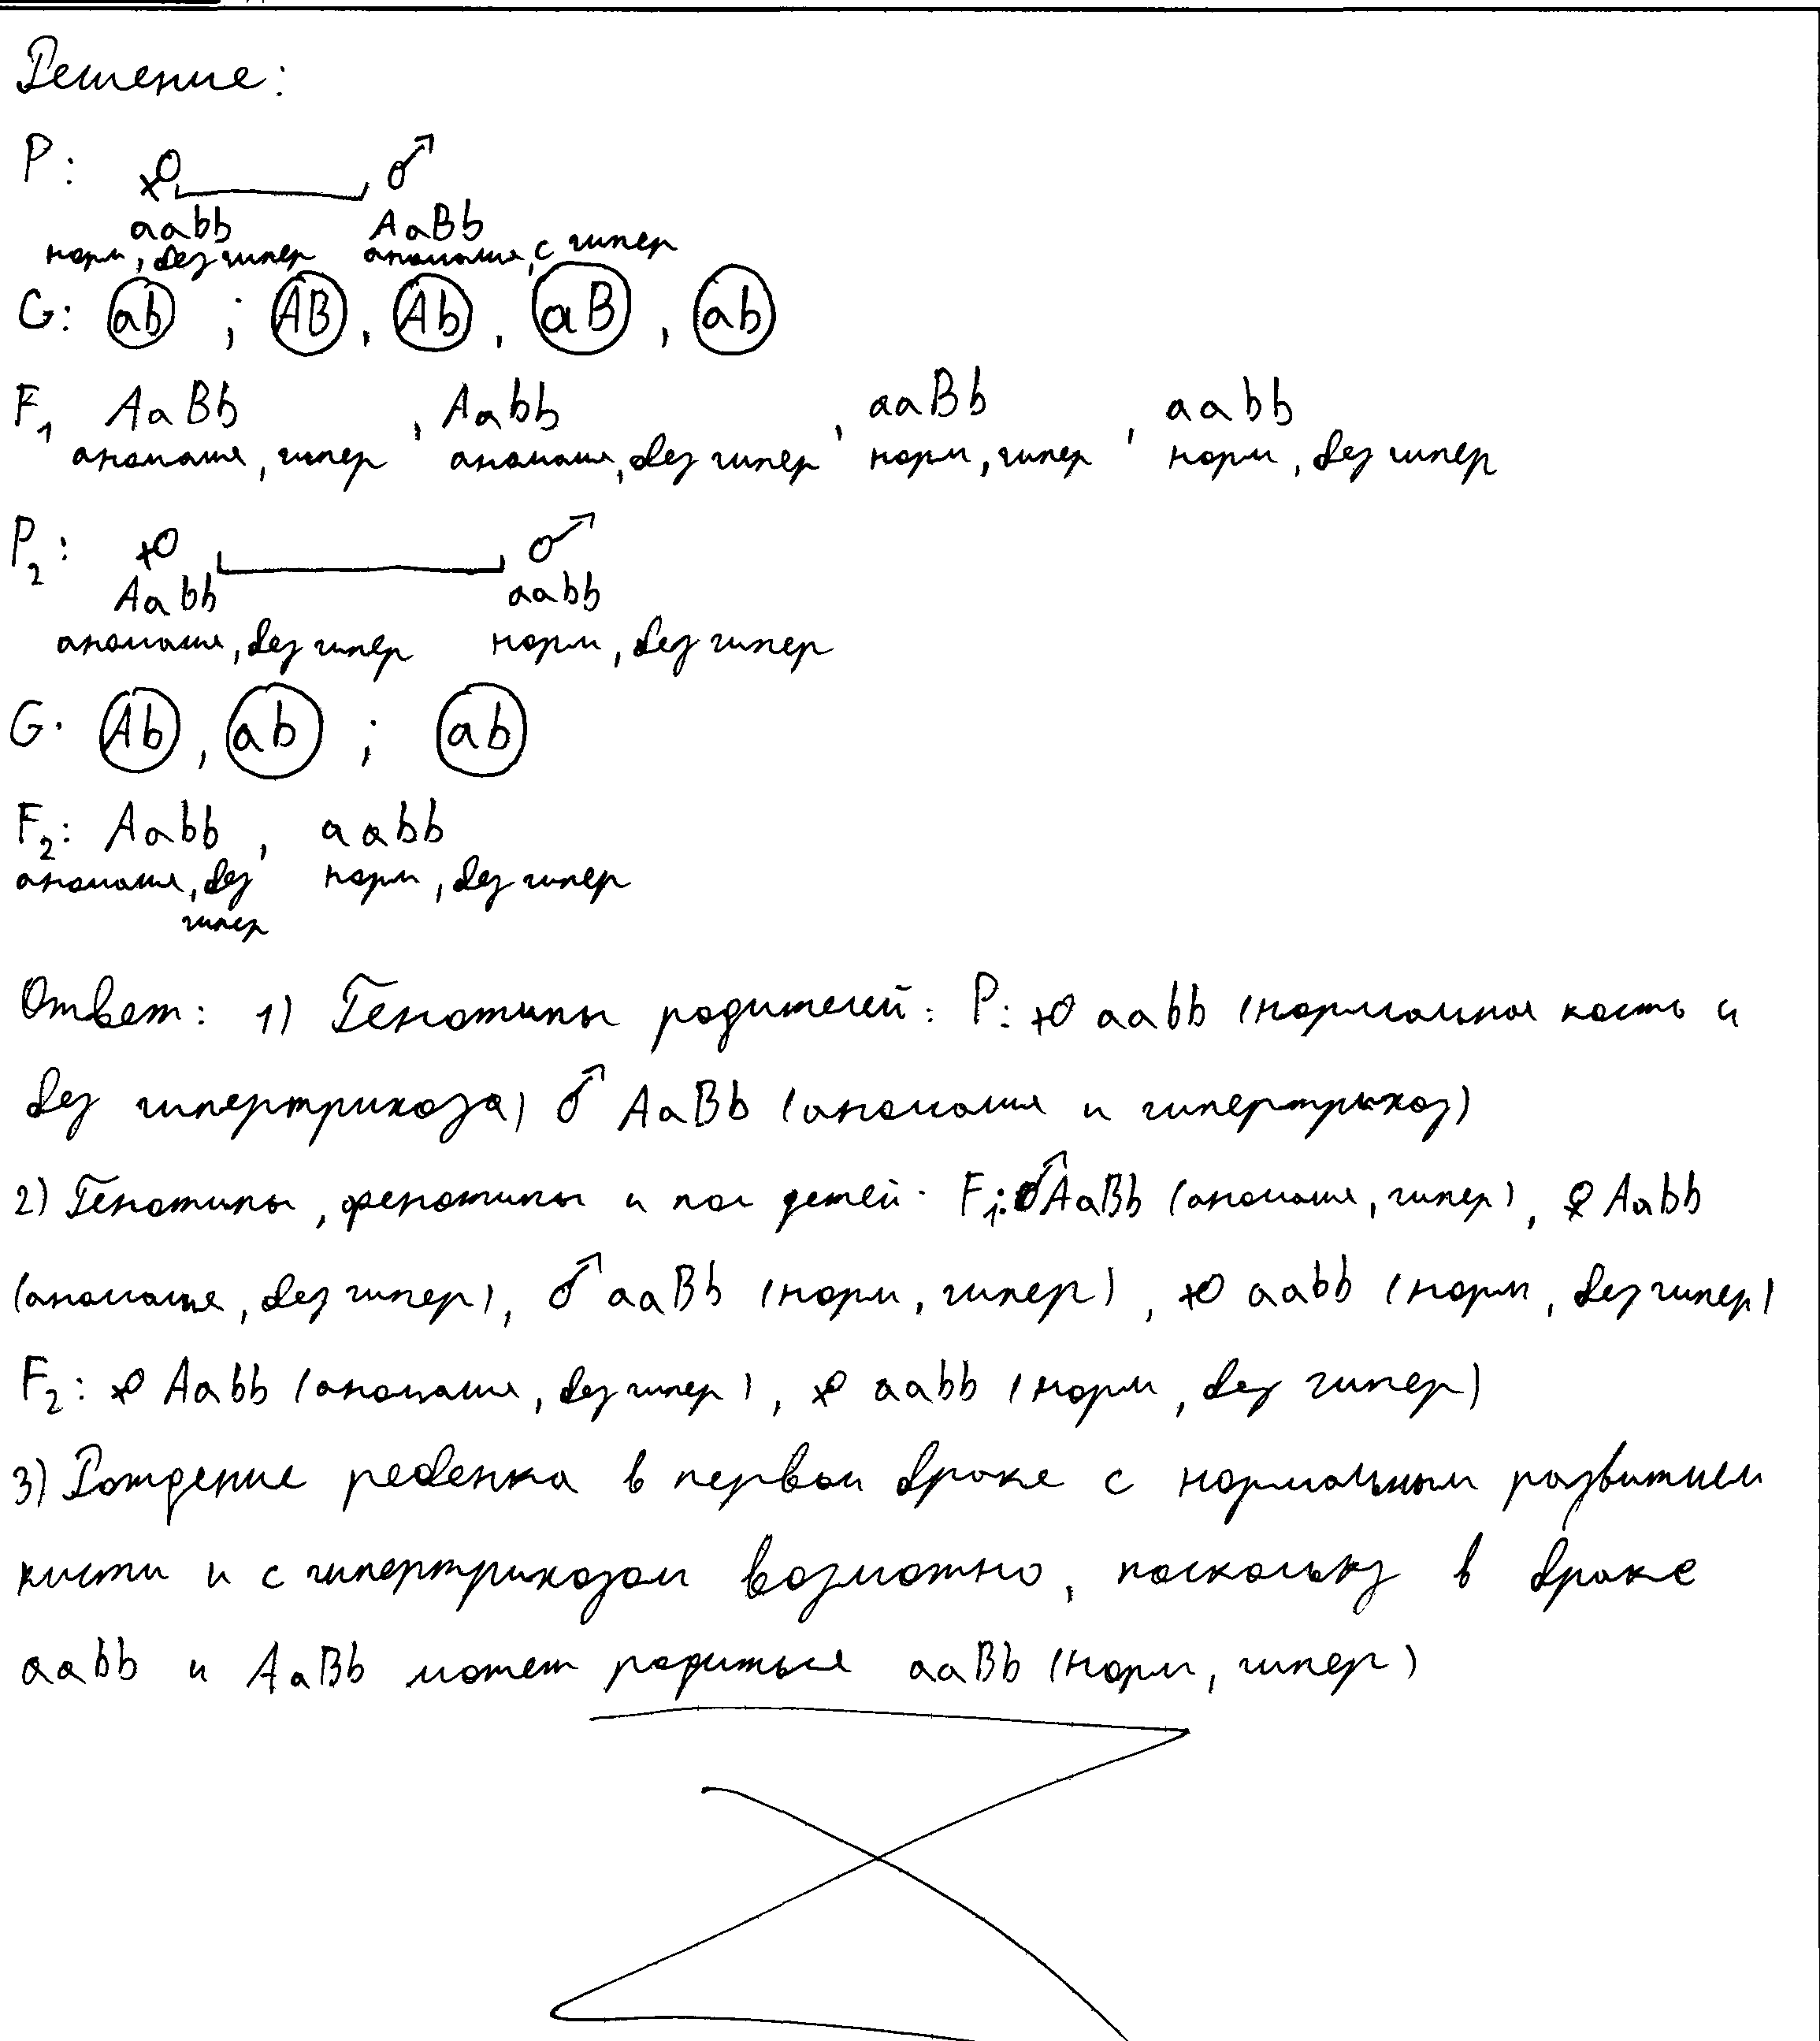 Решение:
P: ♀ ♂
aabb AaBb
норм, без гипер аномалия, с гипер
G: ab ; AB, Ab, aB, ab
F1 AaBb , Aabb , aaBb , aabb
аномалия, гипер аномалия, без гипер норм, гипер норм, без гипер
P2: ♀ ♂
Aabb aabb
аномалия, без гипер норм, без гипер
G: Ab, ab ; ab
F2: Aabb , aabb
аномалия, без норм, без гипер
гипер
Ответ: 1) Генотипы родителей: P: ♀ aabb (нормальная кость и
без гипертрихоза) ♂ AaBb (аномалия и гипертрихоз)
2) Генотипы, фенотипы и пол детей: F1: ♂AaBb (аномалия, гипер), ♀ Aabb
(аномалия, без гипер), ♂ aaBb (норм, гипер), ♀ aabb (норм, без гипер)
F2: ♀ Aabb (аномалия, без гипер), ♀ aabb (норм, без гипер)
3) Рождение ребенка в первом браке с нормальным развитием
кисти и с гипертрихозом возможно, поскольку в браке
aabb и AaBb может родиться aaBb (норм, гипер)